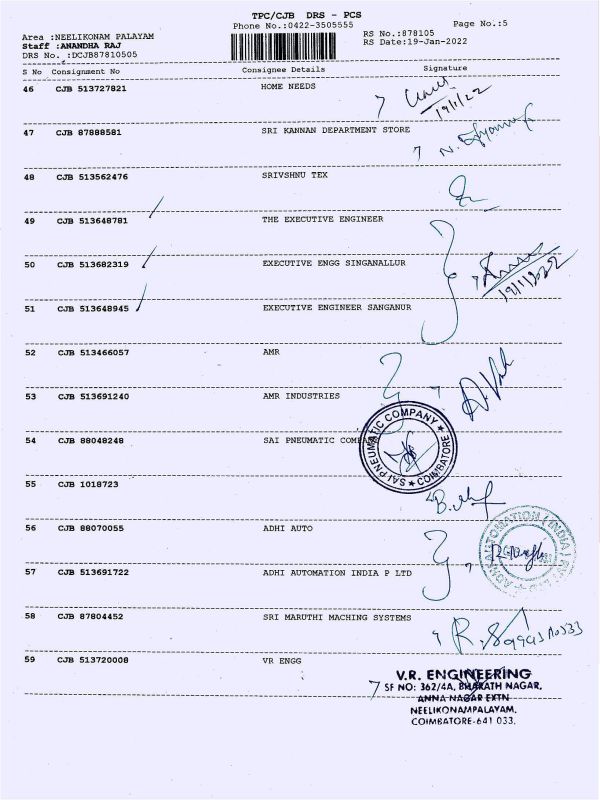 TPC/CJB DRS - PCS
Phone No.:0422-3505555
Page No.:5
Area :NEELIKONAM PALAYAM
RS No.:878105
Staff :ANANDHA RAJ
RS Date:19-Jan-2022
DRS No. :DCJB87810505
S No Consignment No Consignee Details Signature
46 CJB 513727821 HOME NEEDS
19/1/22
47 CJB 87888581 SRI KANNAN DEPARTMENT STORE
48 CJB 513562476 SRIVSHNU TEX
49 CJB 513648781 THE EXECUTIVE ENGINEER
50 CJB 513682319 EXECUTIVE ENGG SINGANALLUR
19/1/2022
51 CJB 513648945 EXECUTIVE ENGINEER SANGANUR
52 CJB 513466057 AMR
53 CJB 513691240 AMR INDUSTRIES
54 CJB 88048248 SAI PNEUMATIC COMPANY
SAI PNEUMATIC COMPANY ★ COIMBATORE ★
55 CJB 1018723
56 CJB 88070055 ADHI AUTO
57 CJB 513691722 ADHI AUTOMATION INDIA P LTD
58 CJB 87804452 SRI MARUTHI MACHING SYSTEMS
59 CJB 513720008 VR ENGG
V.R. ENGINEERING
SF NO: 362/4A, BHARATH NAGAR,
ANNA NAGAR EXTN
NEELIKONAMPALAYAM,
COIMBATORE-641 033.